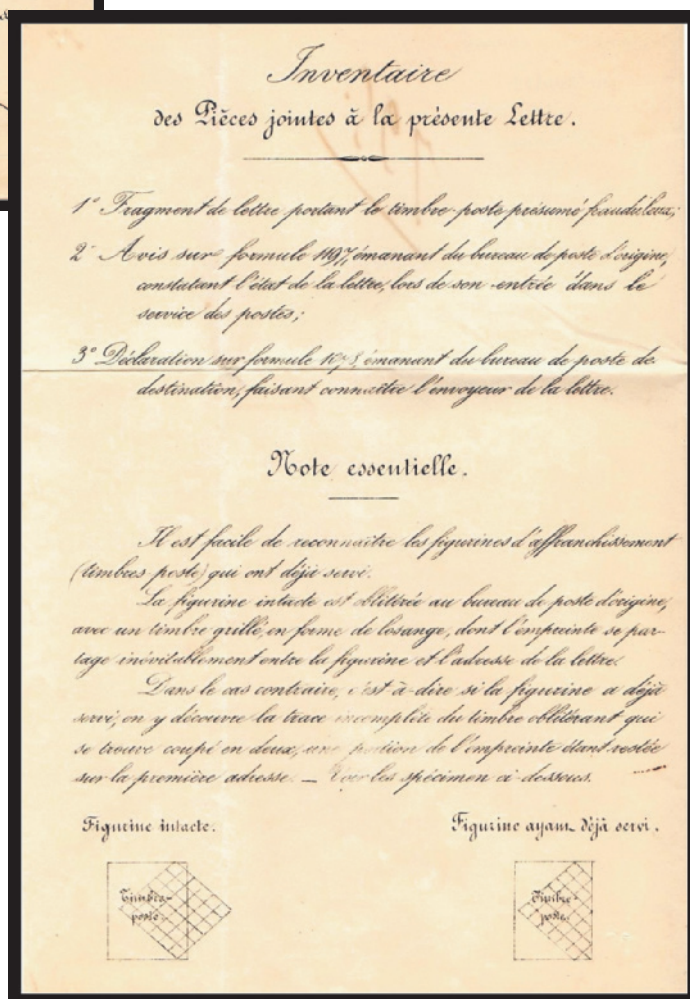 Inventaire
des Pièces jointes à la présente Lettre.
1° Fragment de lettre portant le timbre-poste présumé frauduleux;
2° Avis sur formule 1197, émanant du bureau de poste d'origine,
constatant l'état de la lettre, lors de son entrée dans le
service des postes;
3° Déclaration sur formule 1078, émanant du bureau de poste de
destination, faisant connaître l'envoyeur de la lettre.
Note essentielle.
Il est facile de reconnaître les figurines d'affranchissement
(timbres-poste) qui ont déjà servi.
La figurine intacte est oblitérée au bureau de poste d'origine,
avec un timbre grillé, en forme de losange, dont l'empreinte se par-
tage inévitablement entre la figurine et l'adresse de la lettre.
Dans le cas contraire, c'est-à-dire si la figurine a déjà
servi, on y découvre la trace incomplète du timbre oblitérant qui
se trouve coupé en deux, une portion de l'empreinte étant restée
sur la première adresse. — Voir les spécimen ci-dessous.
Figurine intacte.
Figurine ayant déjà servi.
Timbre-
poste.
Timbre-
poste.